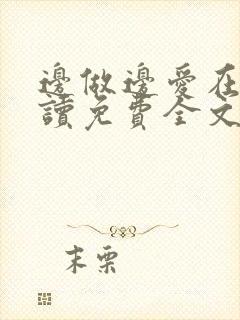 邊做邊愛在
讀免費全文
末栗